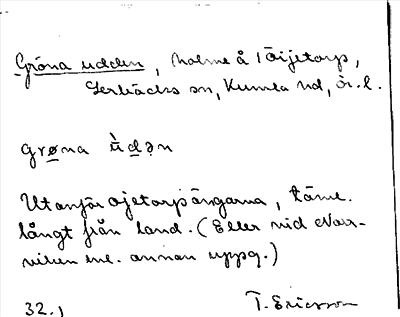 Gröna udden, holme å Öijetorp,
Lerbäcks sn, Kumla hd, Ör. l.
grøna ùdən
Utanför Öjetorpsängarna, täml.
långt från land. (Eller vid Narr-
viken enl. annan uppg.)
32.
T. Ericsson